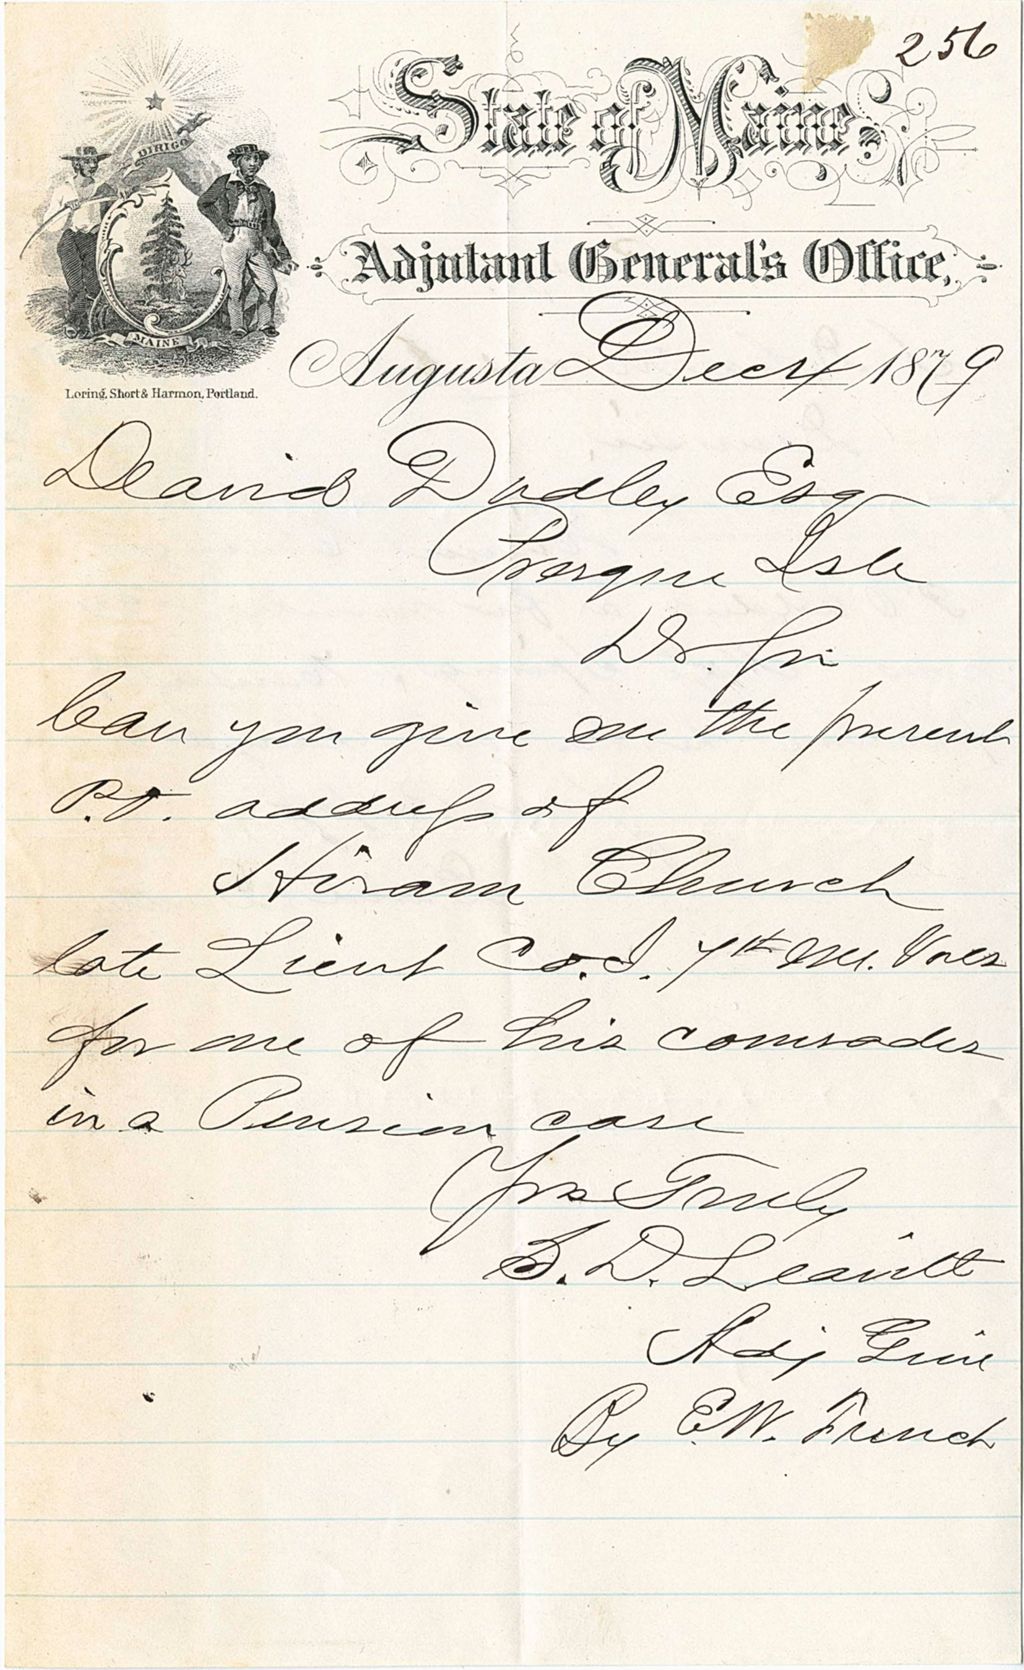 256
State of Maine
DIRIGO
Adjutant General's Office,
MAINE
Augusta Dec 4 1879
Loring, Short & Harmon, Portland.
David Dudley Esq
Presque Isle
Dr. Sir
Can you give me the present
P.O. address of
Hiram Church
late Lieut Co. I. 7th Me. Vols
for one of his comrades
in a Pension case
Yrs Truly
B. D. Leavitt
Adj Genl
By E.W. French